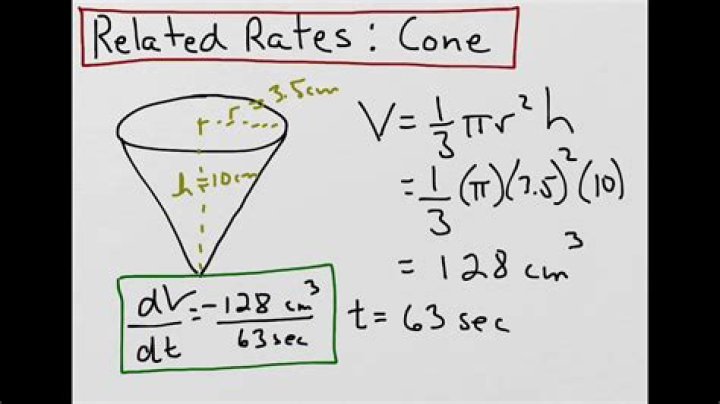 Related Rates: Cone
r = 3.5cm
h = 10cm
V = 1/3 πr²h
= 1/3 (π)(3.5)²(10)
= 128 cm³
t = 63 sec
dV/dt = -128 cm³/63 sec